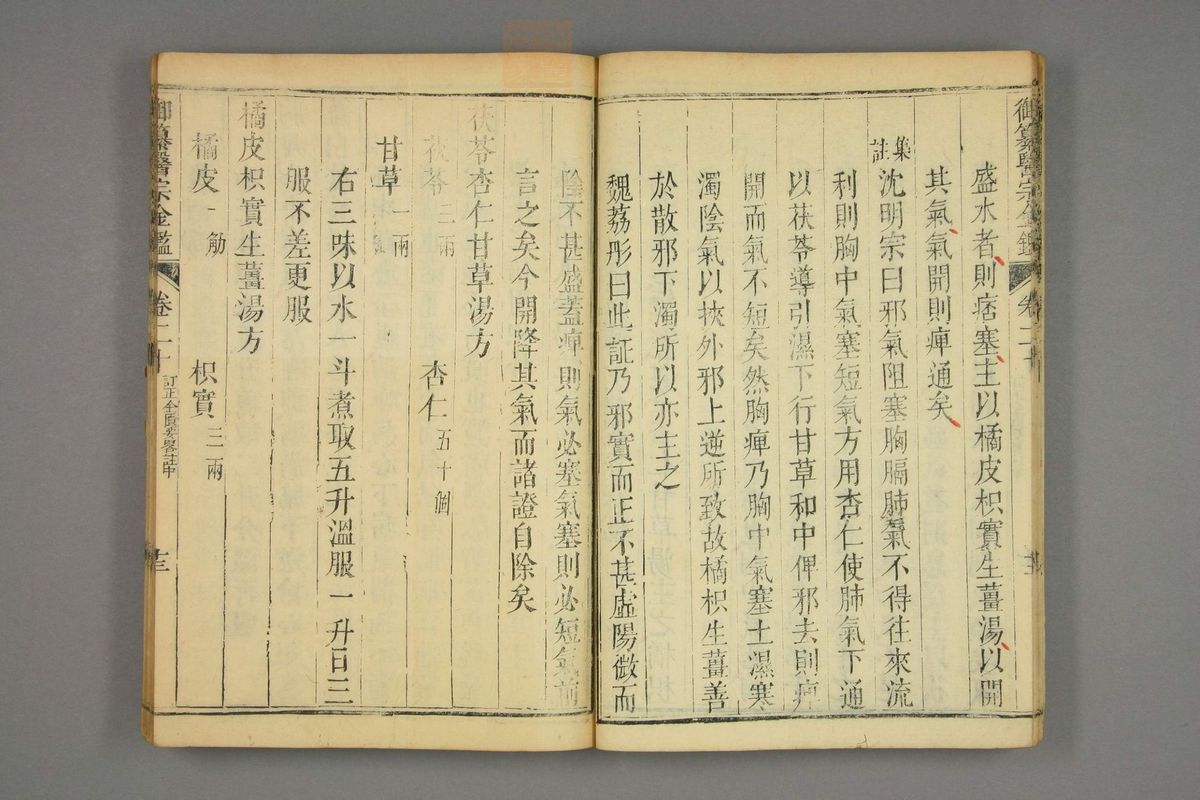 御纂醫宗金鑑 卷二十
盛水者則痞塞主以橘皮枳實生薑湯以開
其氣氣開則痺通矣
集註沈明宗曰邪氣阻塞胸膈肺氣不得往來流
利則胸中氣塞短氣方用杏仁使肺氣下通
以茯苓導引濕下行甘草和中俾邪去則痺
開而氣不短矣然胸痺乃胸中氣塞土濕寒
濁陰氣以挾外邪上逆所致故橘枳生薑善
於散邪下濁所以亦主之
魏荔彤曰此証乃邪實而正不甚虛陽微而
陰不甚盛蓋痺則氣必塞氣塞則必短氣前
言之矣今開降其氣而諸證自除矣
茯苓杏仁甘草湯方
茯苓三兩 杏仁五十個
甘草一兩
右三味以水一斗煮取五升溫服一升日三
服不差更服
橘皮枳實生薑湯方
橘皮一觔 枳實三兩
御纂醫宗金鑑 卷二十 訂正金匱要畧註中 十三